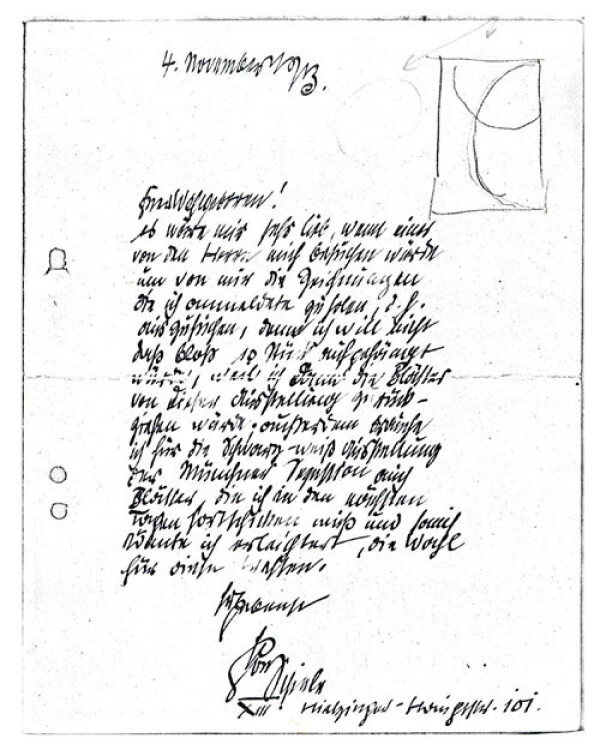 4. November 1913.
es wäre mir sehr lieb, wenn einer
von den Herrn mich besuchen würde
um von mir die Zeichnungen
die ich anmeldete zu holen, d. h.
auszusuchen, denn ich will nicht
daß bloß 10 Stück aufgehängt
würden, weil ich dann die Blätter
von dieser Ausstellung zurück-
ziehen würde; außerdem brauche
ich für die Schwarz-weiß Ausstellung
der Münchner Sezession auch
Blätter, die ich in den nächsten
Tagen fortschicken muß und somit
könnte ich erleichtert, die Wahl
für diese treffen.
Ergebenst
Egon Schiele
XIII Hietzinger-Hauptstr. 101.